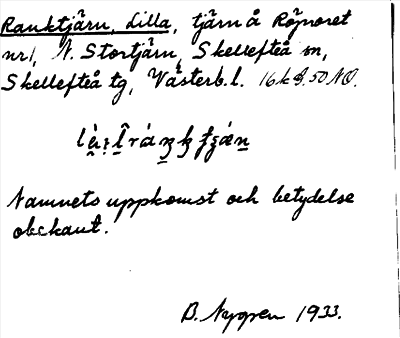 Ranktjärn, Lilla, tjärn å Röjnoret
nr1, N. Stortjärn, Skellefteå sn,
Skellefteå tg, Västerb.l. 16k
Namnets uppkomst och betydelse
obekant.
B. Nygren 1933.